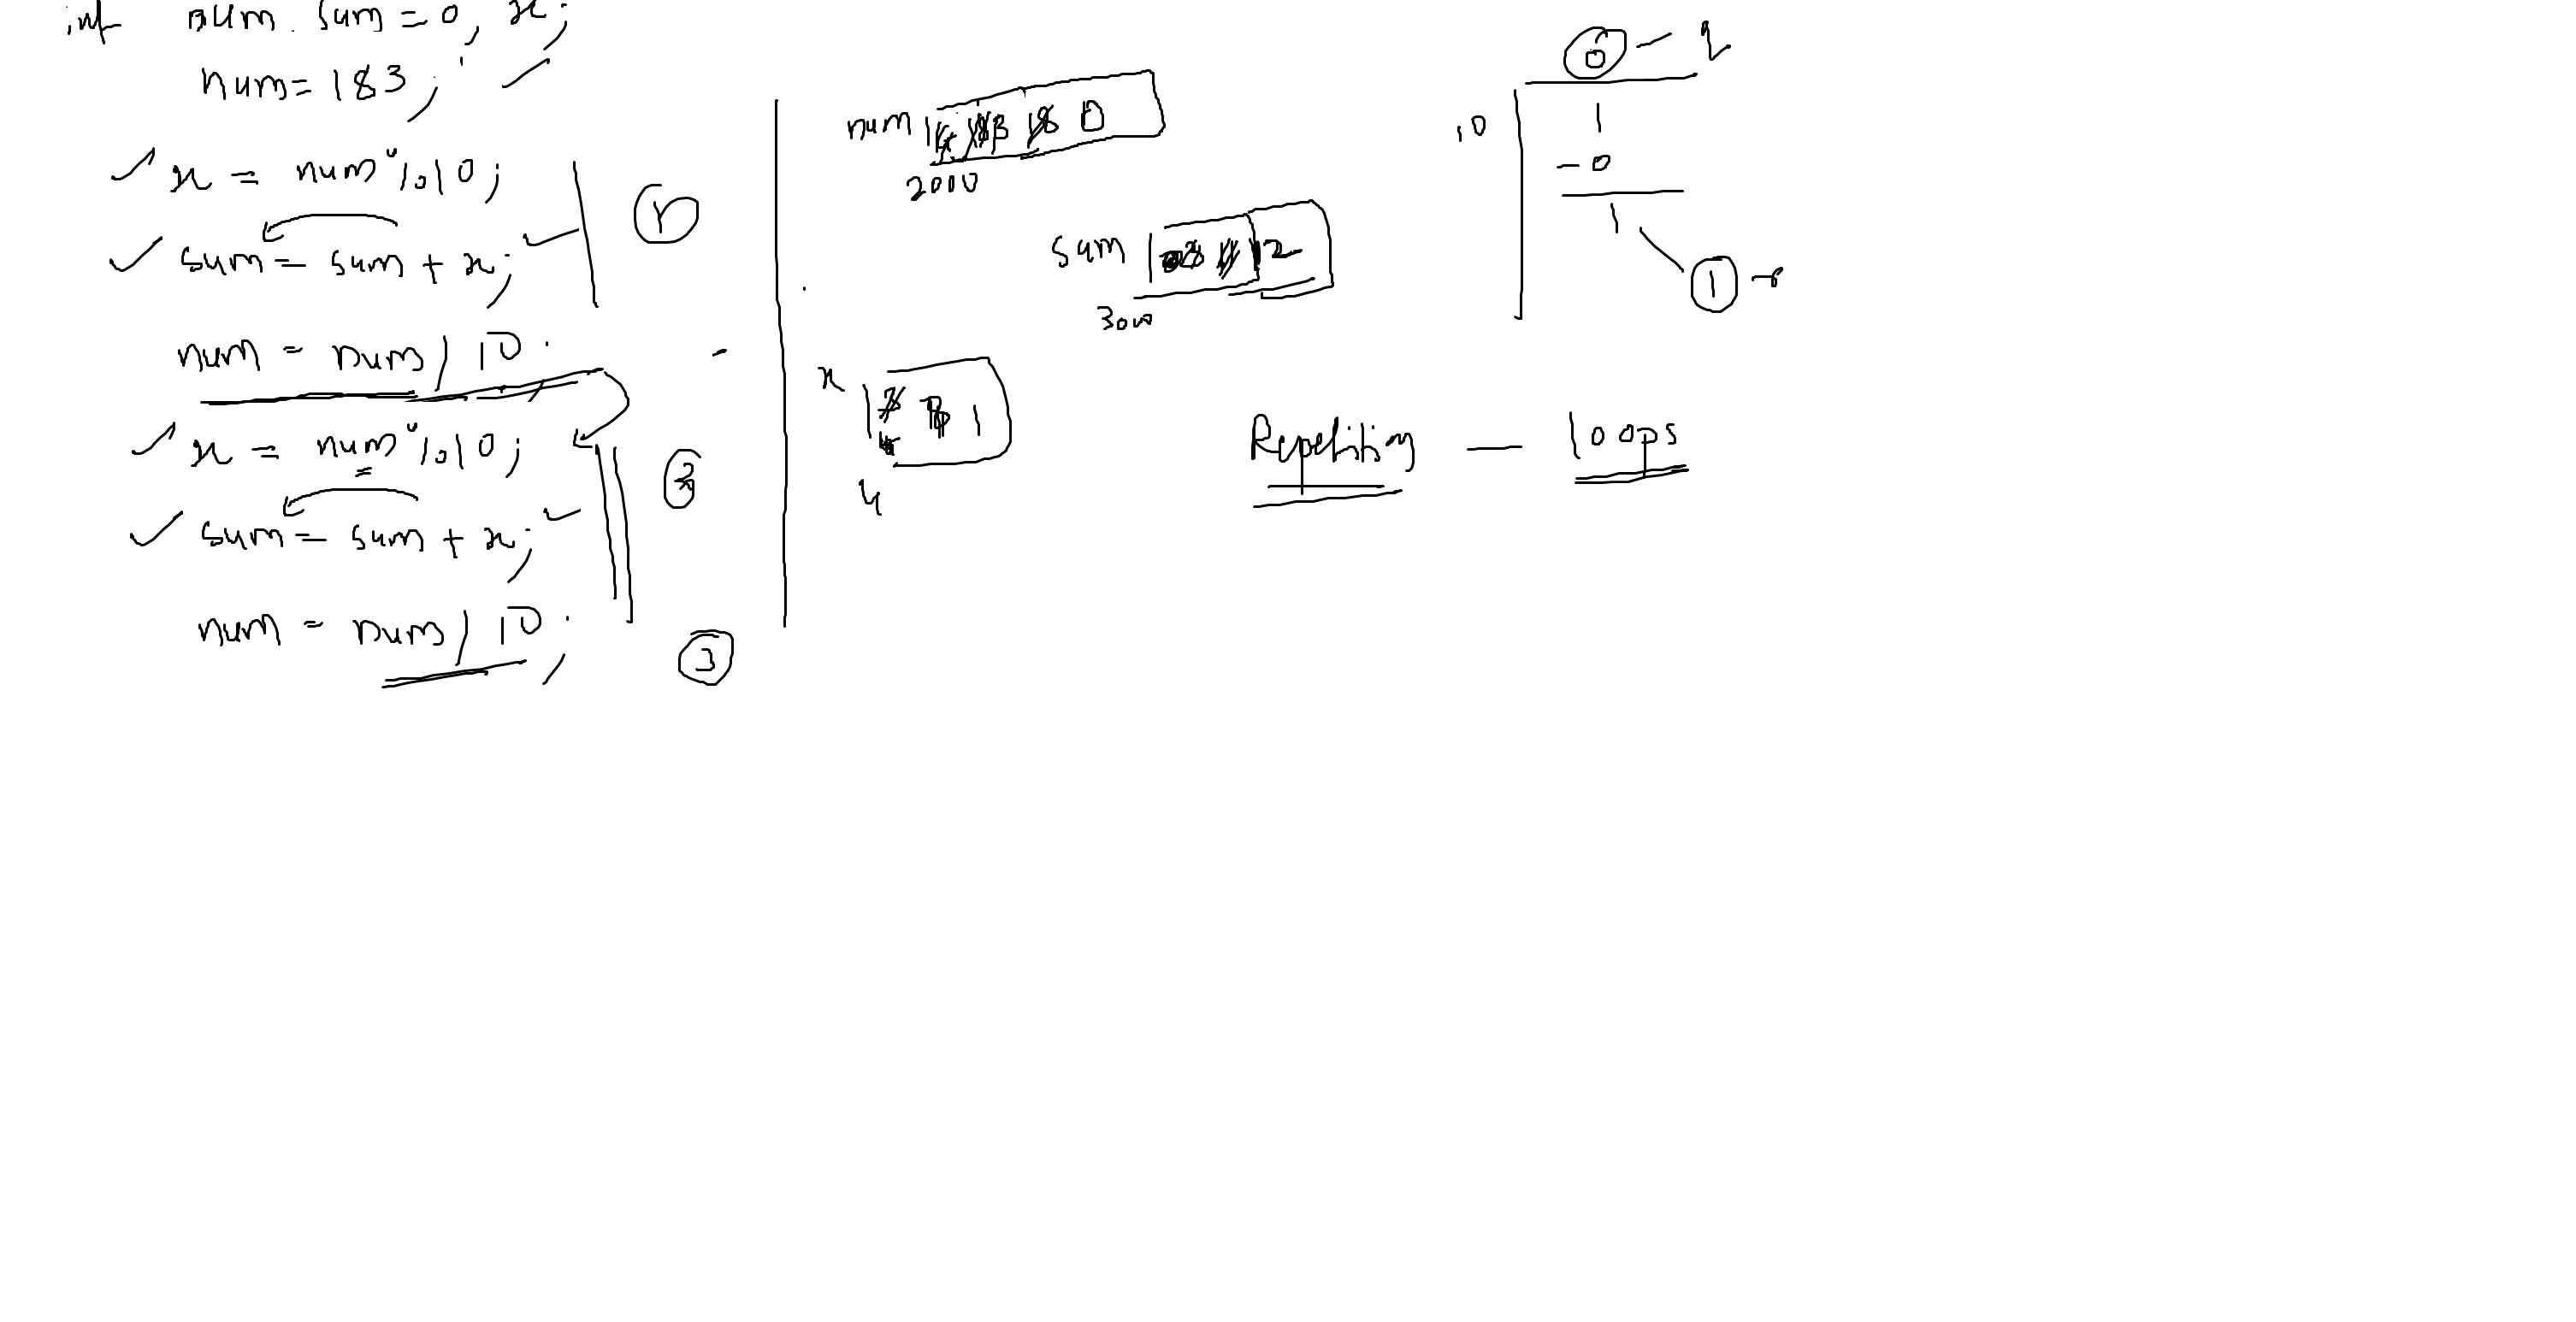 int num, sum = 0, x;
num = 183;
x = num % 10;
sum = sum + x;
1
num = num / 10.
x = num % 10;
sum = sum + x;
2
num = num / 10;
3
num 183 18 0
2000
sum 0 3 11 12
3000
x 3 8 1
4
0 - q
10
1
- 0
1
1 - r
Repetition - loops